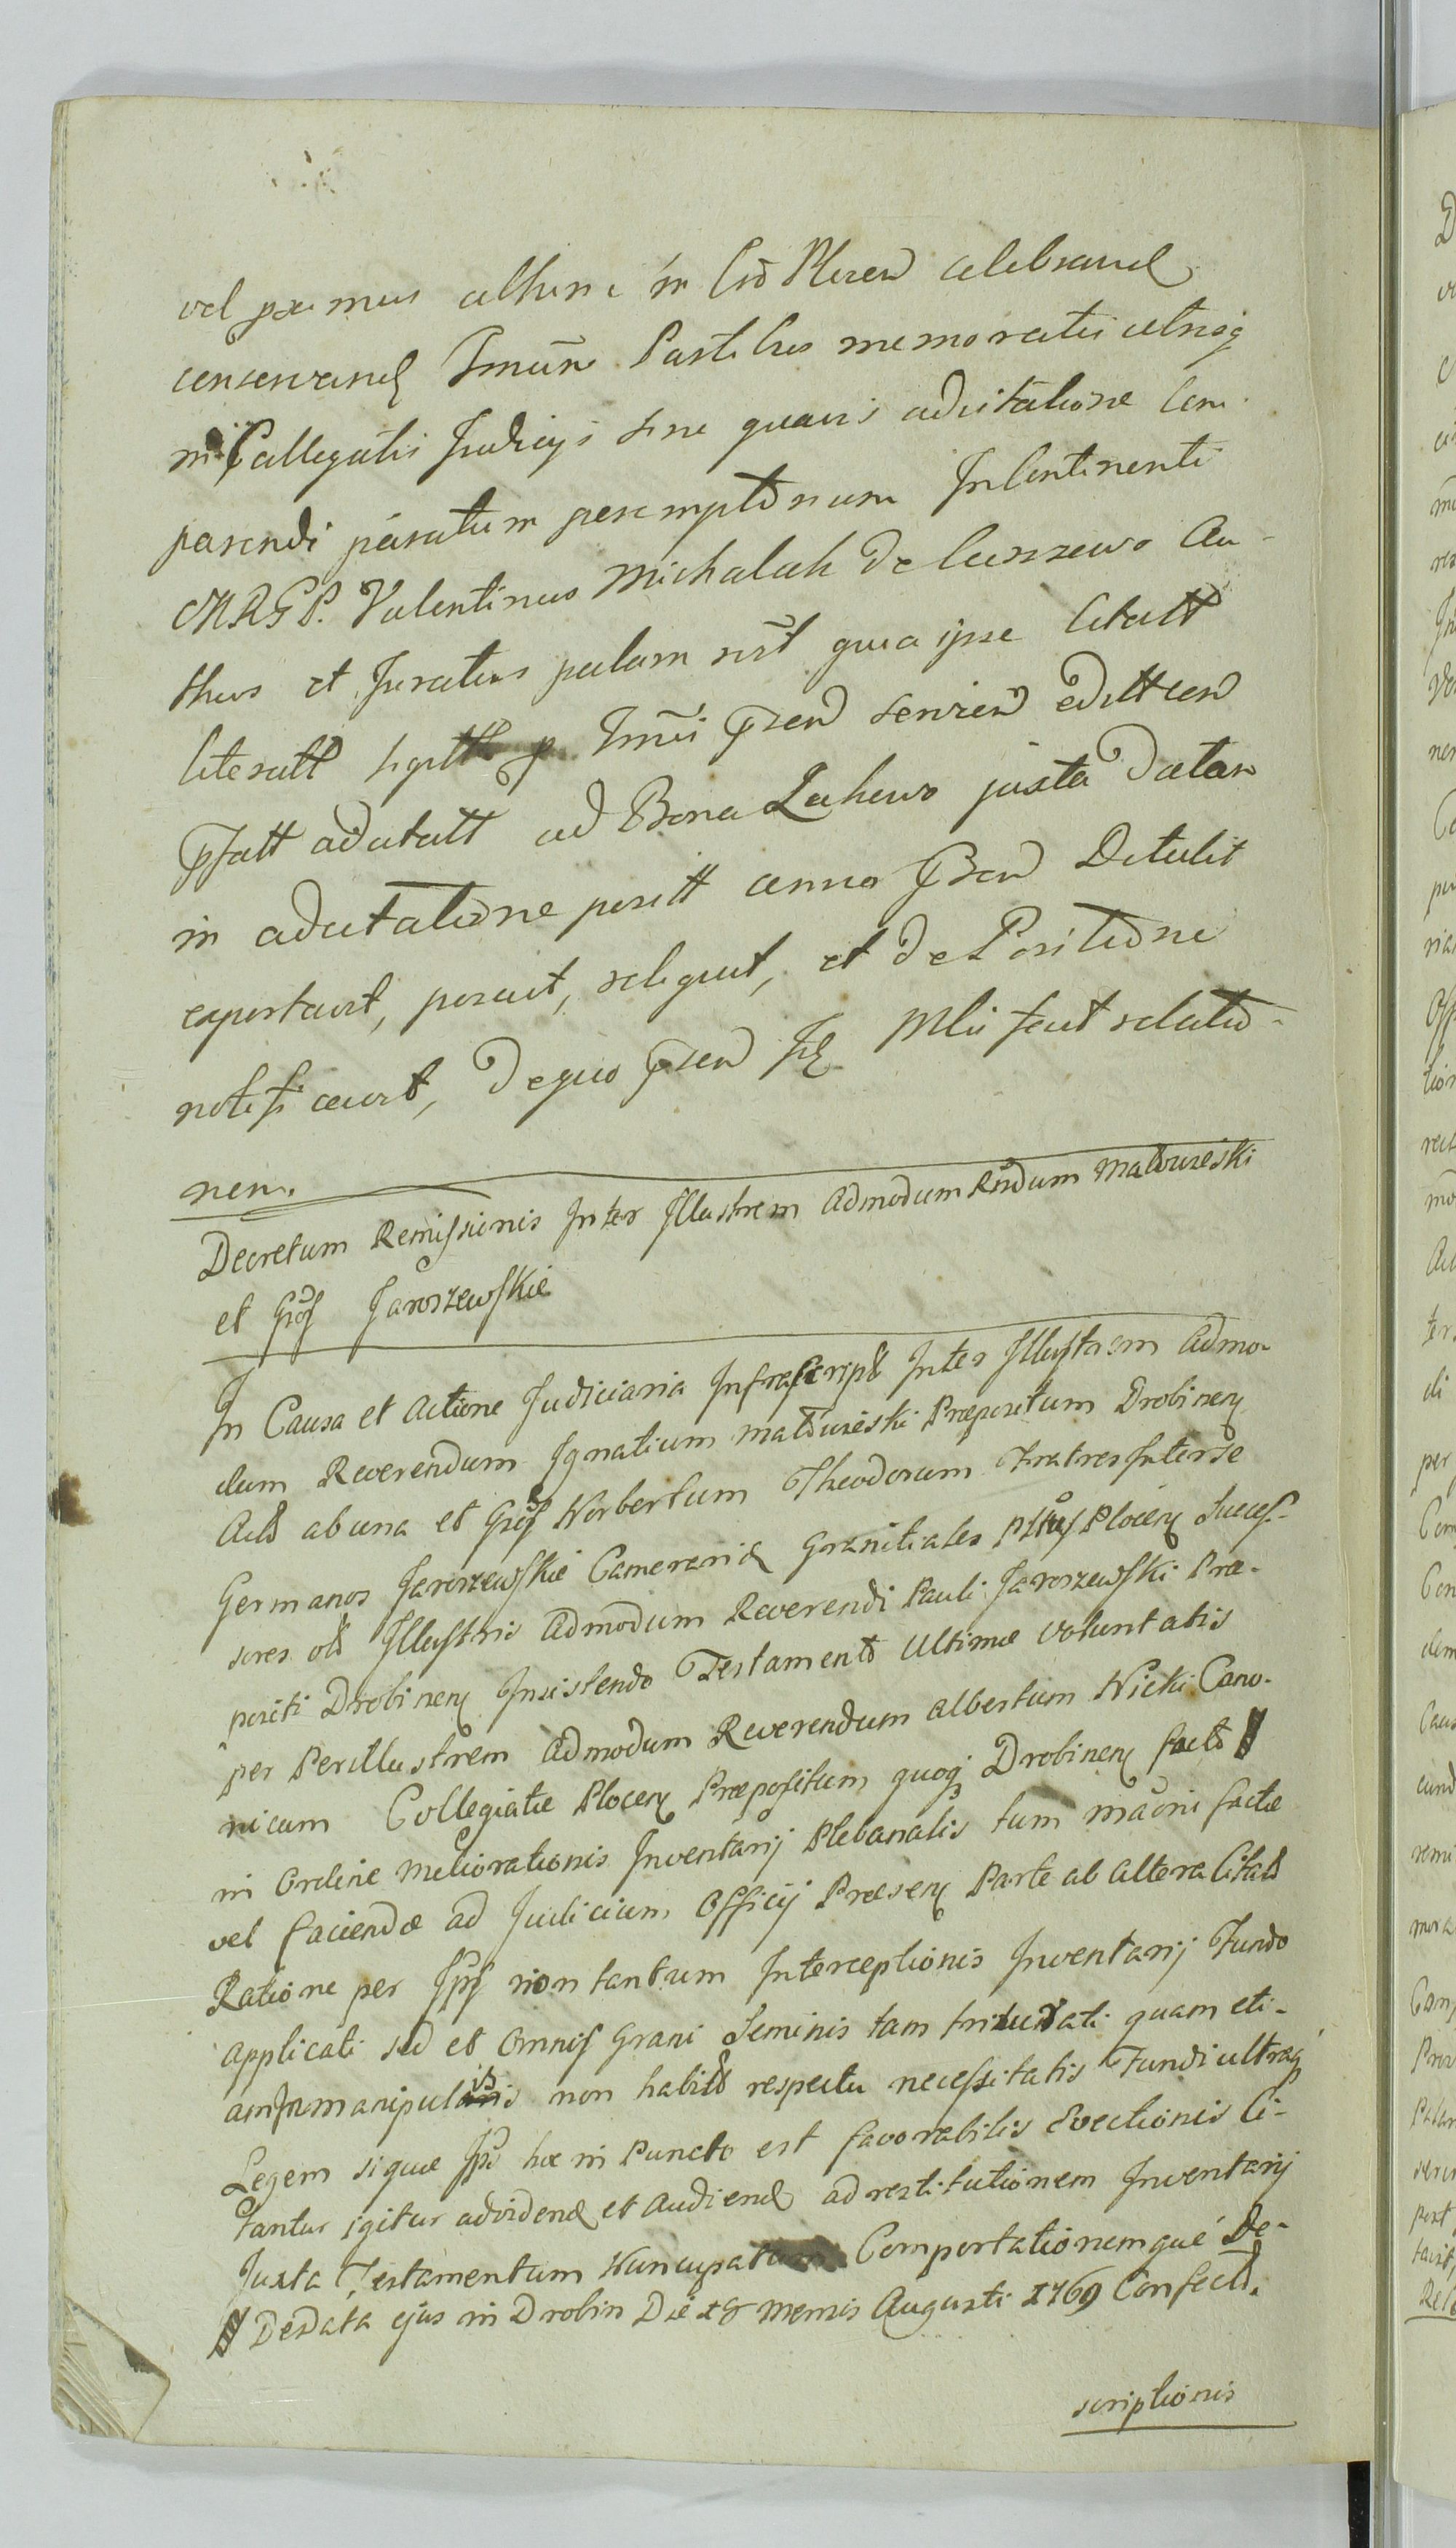 vel primus celeb in Cṙo Plocen celebrand
conservand Tmũm Partibus memoratis utrisq
in Collegatis Judicijs sine quavis adcitatione Com
parendi paratum peremptorium Incontinenti
MRGP. Valentinus Michalak de Cuszewo Au-
thus et Juratus palam rc̃t quia ipse Citatt
literatt sigitt p Tmũi p̃sen serven edittcon
p̃fatt adcitatt ad Bona Lukewo juxta datam
in adcitatione positt anno p̃sen Detulit
exportavit, posuit, reliquit, et de Positione
notificavit, de quo p̃sen Mlis fecit relatio-
nem.
Decretum Remissionis Inter Illustrem Admodum Rñdum
et Gñof Jaroszewskie
In Causa et Actione Judiciaria Infrascript Inter Illustrem Admo-
dum Reverendum Ignatium Præpositum Drobinen
Act ab una et Gñof Norbertum Theodorum Fratres Inter se
Germanos Jaroszewskie Camerarid Granitiales Plocen Succes-
sores olt Illustris Admodum Reverendi Pauli Jaroszewski Præ-
positi Drobinen Insistendo Testamento Ultimæ Voluntatis
per Perillustrem Admodum Reverendum Albertum Nicki Cano-
nicum Collegiatæ Plocen Præpositum quoq Drobinen facto
in Ordine Meliorationis Inventarij Plebanalis tum factæ
vel faciendæ ad Judicium Officij Præsen Parte ab Altera Citatt
Ratione per Ipsf non tantum Interceptionis Inventarij Fundo
Applicati sed et Omnis Grani Seminis tam triturati quam eti-
am manipularis non habito respectu necessitatis Fundi ultraq
Legem sique hæ in Puncto est favorabilis Evectionis Ci-
tantur igitur advidend et Audiend ad restitutionem Inventarij
Juxta Testamentum Nuncupatum Comportationemque De-
De Data ejus in Drobin Die 18 Mensis Augusti 1769 Confect.
scriptionis